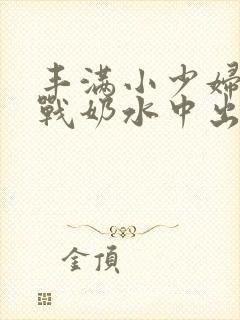 丰满小少婦
戰奶水中出
金頂